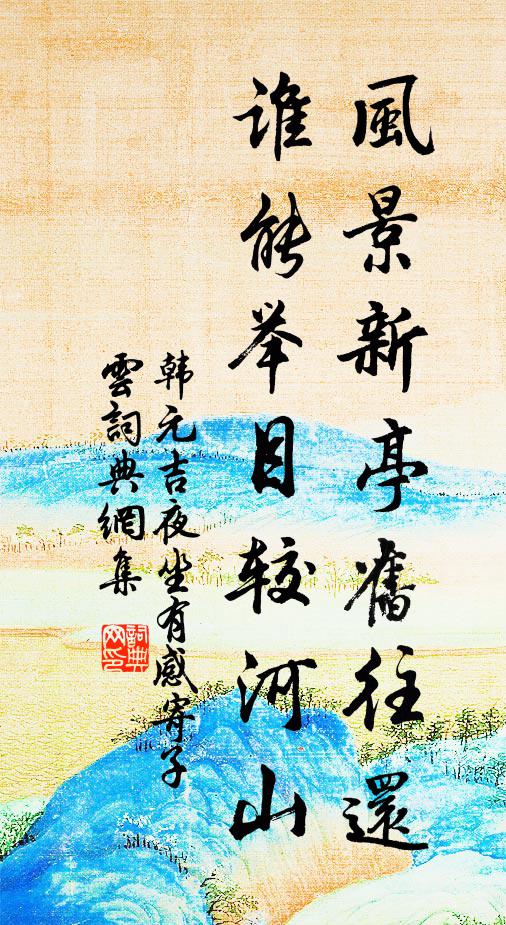 風景新亭舊往還
誰能举目较河山
韩元吉夜坐有感寄子
雲詞典網集
詞典
网印